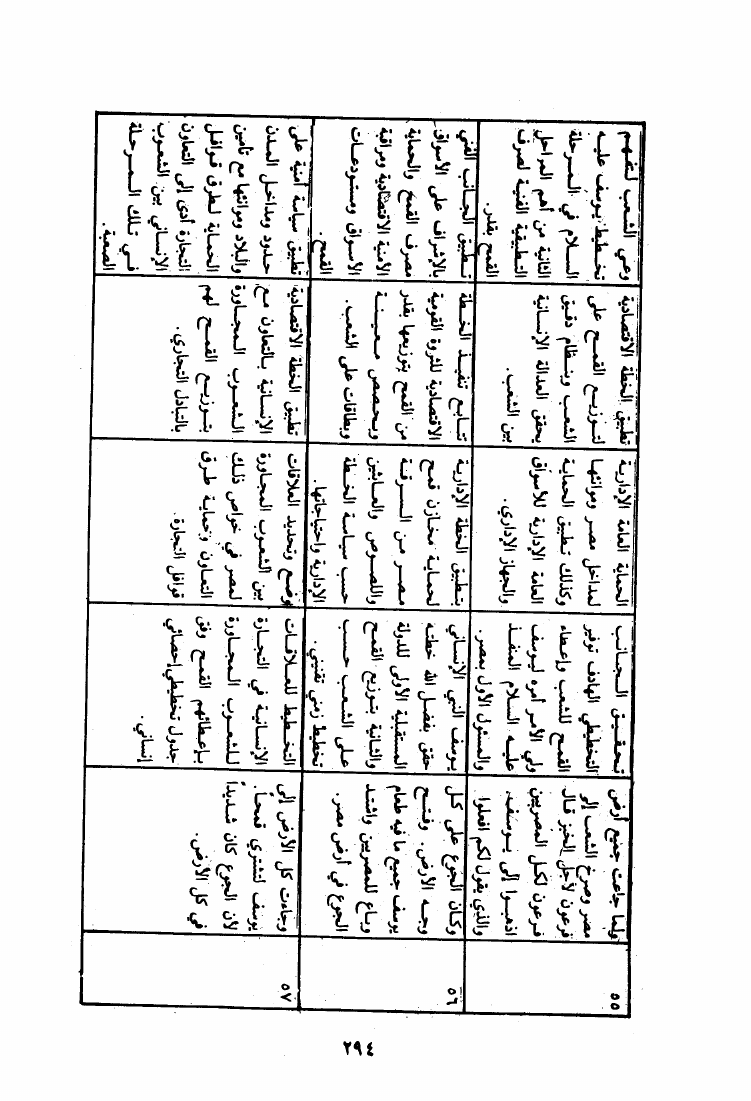 ٥٥
ولما جاعت جميع أرض
مصر وصرخ الشعب إلى
فرعون لأجل الخبز قال
فرعون لكل المصريين
اذهبوا إلى يوسف.
والذي يقول لكم افعلوا.
تحقيق الجانب
التخطيطي الهادف توفير
القمح للشعب وإعطاء
ولي الأمر أمره ليوسف
عليه السلام المنفذ
والمسئول الأول بمصر.
الحماية العامة الإدارية
لمداخل مصر وموانئها
وكذلك تطبيق الحماية
العامة الإدارية للأسواق
والجهاز الإداري.
تطبيق الخطة الاقتصادية
لتوزيع القمح على
الشعب وبنظام دقيق
يحقق العدالة الإنسانية
بين الشعب.
وعي الشعب لتفهم
تخطيط يوسف عليه
السلام في المرحلة
الثانية من أهم المراحل
التطبيقية الفنية لصرف
القمح بقدر.
٥٦
وكان الجوع على كل
وجه الأرض. وفتح
يوسف جميع ما فيه طعام
وباع للمصريين واشتد
الجوع في أرض مصر.
يوسف النبي الإنساني
حقق بفضل الله خطته
المستقبلية الأولى للدولة
والثانية بتوزيع القمح
على الشعب حسب
تخطيط زمني تقنيني.
تطبيق الخطة الإدارية
لحماية مخازن قمح
مصر من السرقة
واللصوص والعابثين
حسب سياسة الخطة
الإدارية واحتياجاتها.
تتابع تنفيذ الخطة
الاقتصادية للثروة القومية
من القمح بتوزيعها بقدر
وبحصص معينة
وبطاقات على الشعب.
تطبيق الجانب الفني
بالإشراف على الأسواق
مصرف القمح والحماية
الأمنية الاقتصادية ومراقبة
الأسواق ومستودعات
القمح.
٥٧
وجاءت كل الأرض إلى
يوسف لتشتري قمحاً.
لأن الجوع كان شديداً
في كل الأرض.
التخطيط للعلاقات
الإنسانية في التجارة
للشعوب المجاورة
بإعطائهم القمح وفق
جدول تخطيطي إحصائي
إنساني.
وضع وتحديد العلاقات
بين الشعوب المجاورة
لمصر في خواص ذلك
التعاون وحماية طرق
قوافل التجارة.
تطبيق الخطة الاقتصادية
الإنسانية بالتعاون مع
الشعوب المجاورة
بتوزيع القمح لهم
بالتبادل التجاري.
تطبيق سياسة أمنية على
حدود ومداخل المدن
والبلاد وموانئها مع تأمين
الحماية لطرق قوافل
التجارة أدى إلى التعاون
الإنساني بين الشعوب
في تلك المرحلة
الصعبة.
٢٩٤